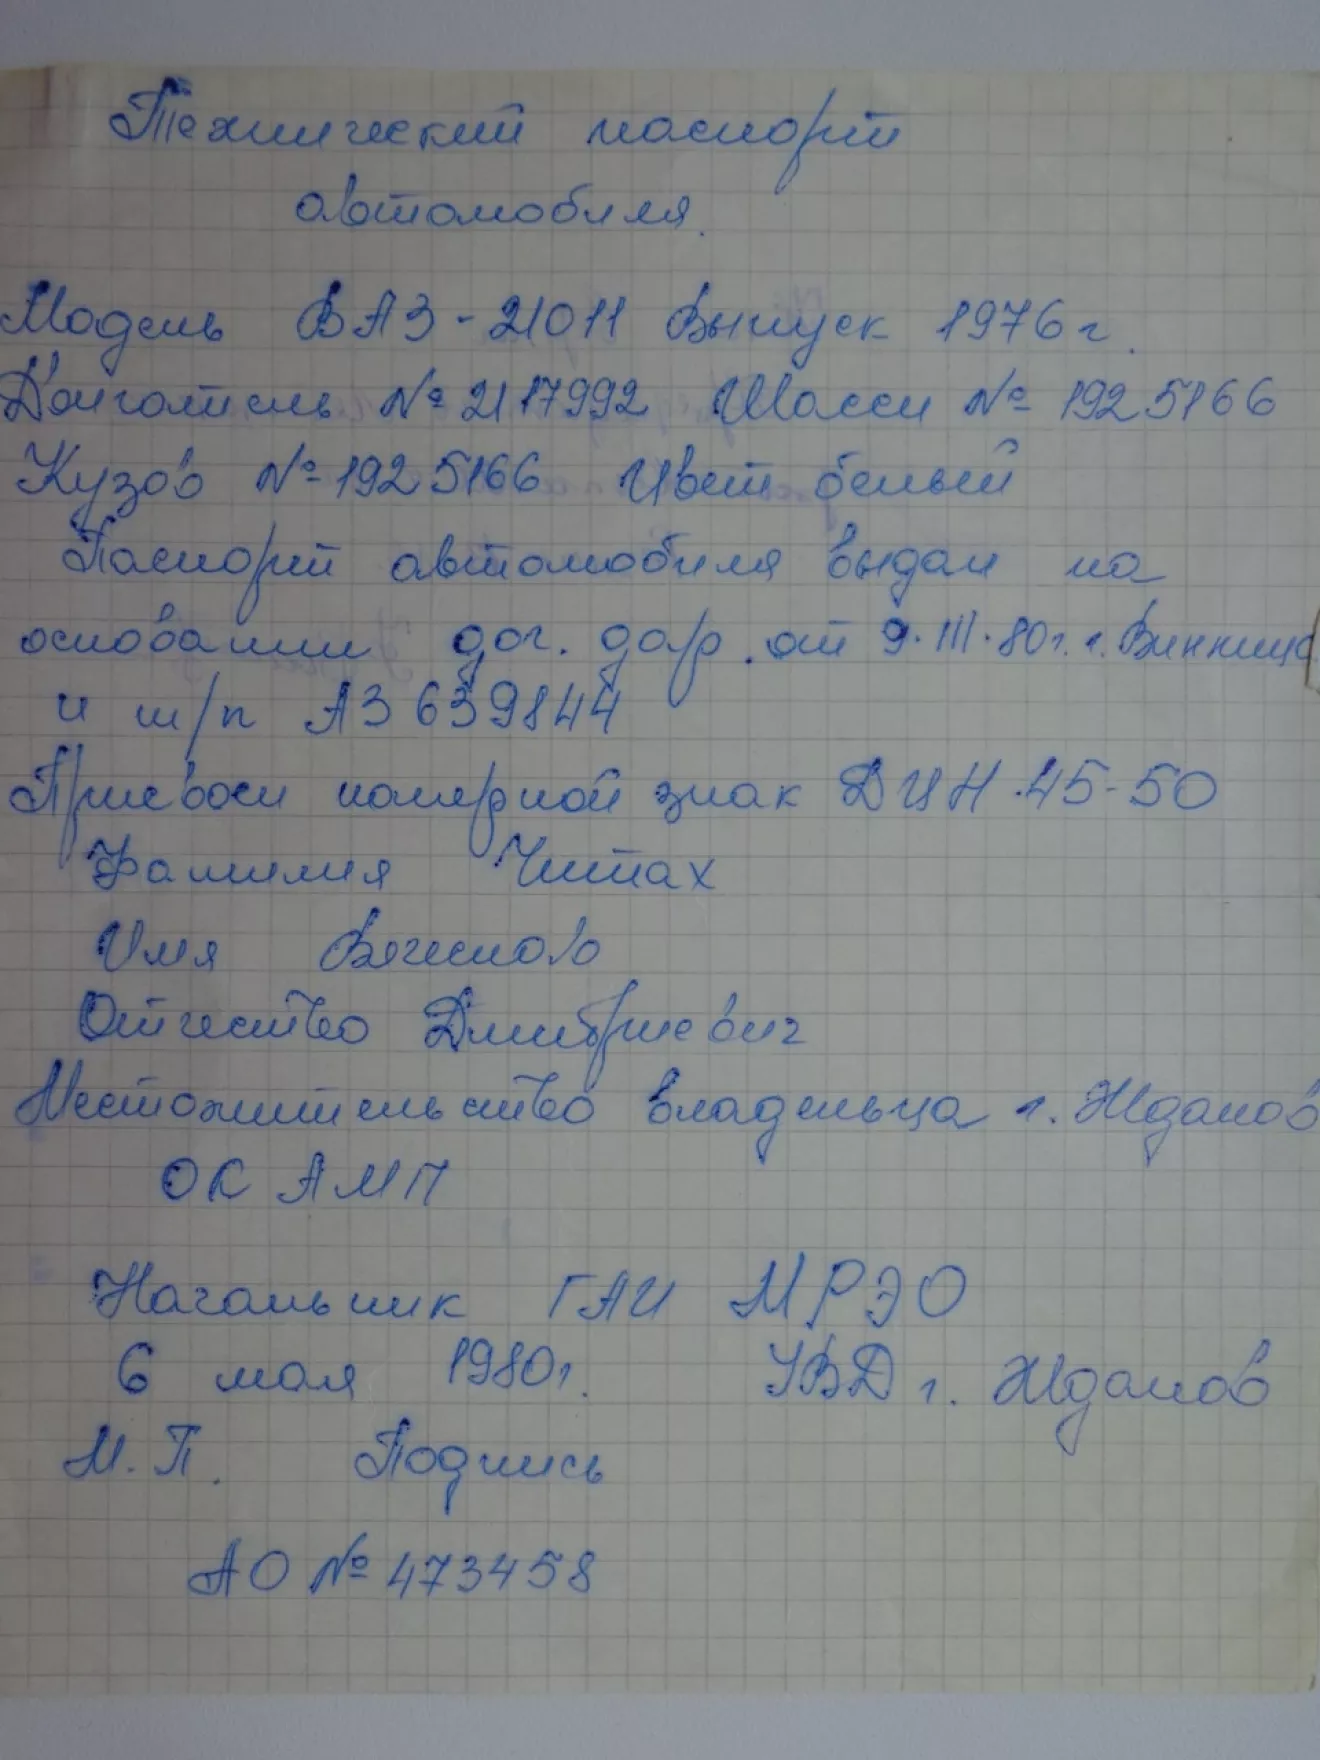 Технический паспорт
автомобиля.
Модель ВАЗ-21011 Выпуск 1976г.
Двигатель № 2117992 Шасси № 1925166
Кузов № 1925166 Цвет белый
Паспорт автомобиля выдан на
основании дог. дар. от 9.III.80г. г. Винница
и т/п АЗ 639844
Присвоен номерной знак ДЦН 45-50
Фамилия Читах
Имя Вячеслав
Отчество Дмитриевич
Местожительство владельца г. Жданов
ОК АМП
Начальник ГАИ МРЭО
6 мая 1980г. УВД г. Жданов
М.П. Подпись
АО № 473458